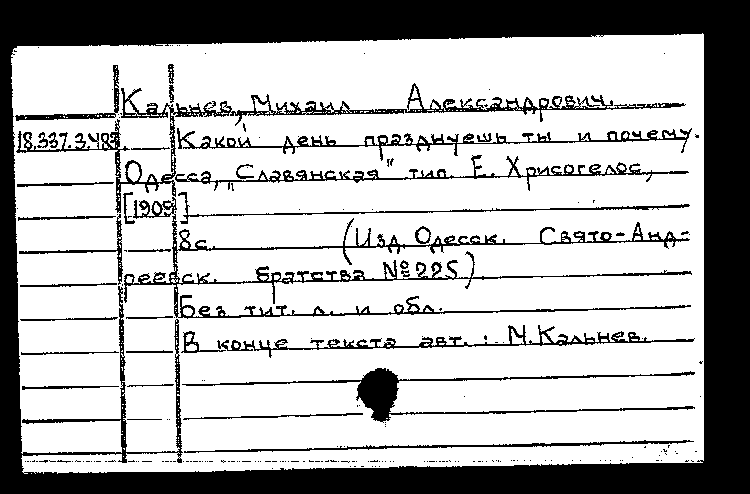 Кальнев, Михаил Александрович.
18.337.3.483. Какой день празднуешь ты и почему.
Одесса, „Славянская" тип. Е. Хрисогелос,
[1909]
8с. (Изд. Одесск. Свято-Анд-
реевск. братства №225).
Без тит. л. и обл.
В конце текста авт.: М. Кальнев.